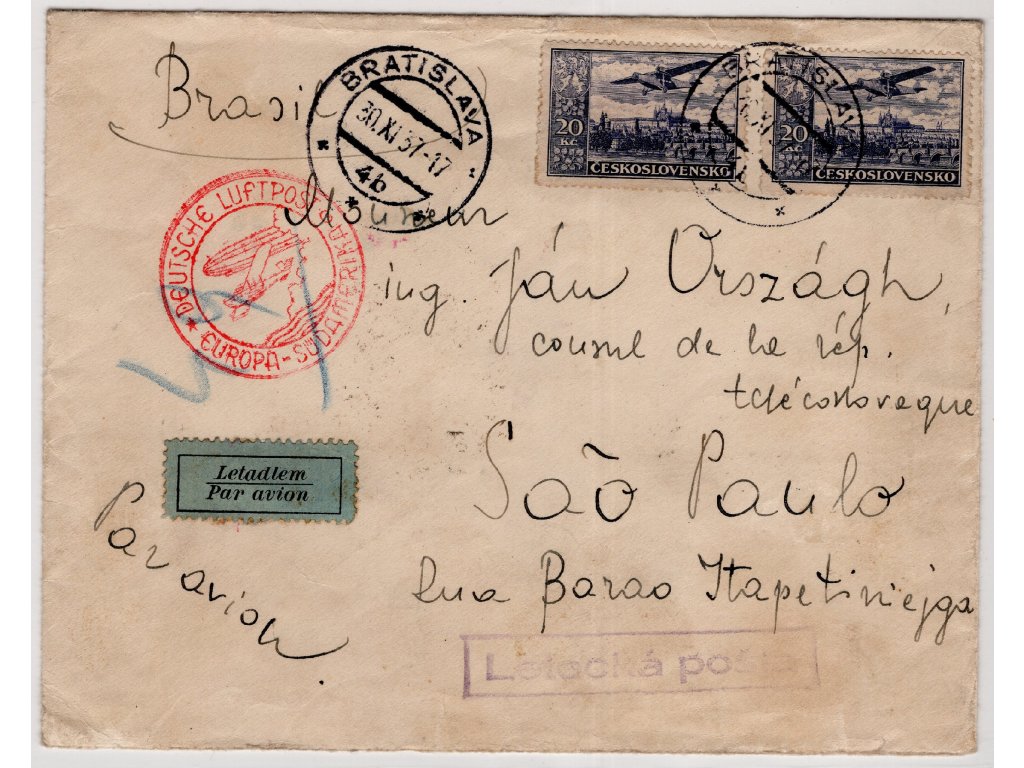 Brasil
BRATISLAVA
30.XI 37-17
4b
20 Kč
ČESKOSLOVENSKO
20 Kč
ČESKOSLOVENSKO
BRATISLAVA
DEUTSCHE LUFTPOST
EUROPA-SÜDAMERIKA
Monsieur
ing. Ján Országh,
consul de la rép.
tchécoslovaque
São Paulo
Rua Barao Itapetiniejga
Letadlem
Par avion
Par avion
Letecká pošta